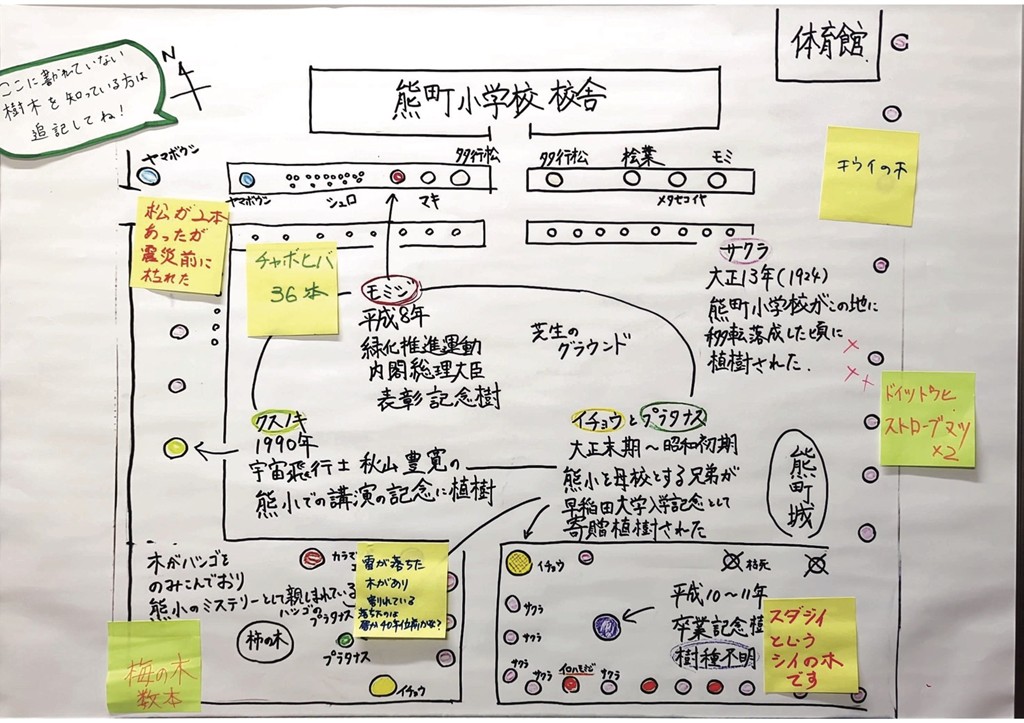 体育館
ここに書かれていない
樹木を知っている方は
追記してね!
N
熊町小学校 校舎
ヤマボウシ
ヤマボウシ
シュロ
マキ
タギョウ松
タギョウ松
桧葉
メタセコイヤ
モミ
キウイの木
松が1本
あったが
震災前に
枯れた
チャボヒバ
36本
モミジ
平成8年
緑化推進運動
内閣総理大臣
表彰記念樹
芝生の
グラウンド
サクラ
大正13年(1924)
熊町小学校がこの地に
移転落成した頃に
植樹された.
ドイツトウヒ
ストローブマツ
×2
クスノキ
1990年
宇宙飛行士 秋山豊寛の
熊小での講演の記念に植樹
イチョウとプラタナス
大正末期〜昭和初期
熊小を母校とする兄弟が
早稲田大学入学記念として
寄贈植樹された
熊町城
木がバンゴを
のみこんでおり
熊小のミステリーとして親しまれている
バンゴの
プラタナス
柿の木
プラタナス
イチョウ
梅の木
数本
雷が落ちた
木があり
割れている
イチョウ
サクラ
サクラ
サクラ
イロハモミジ
サクラ
枯死
平成10〜11年
卒業記念樹
樹種不明
スダジイ
という
シイの木
です